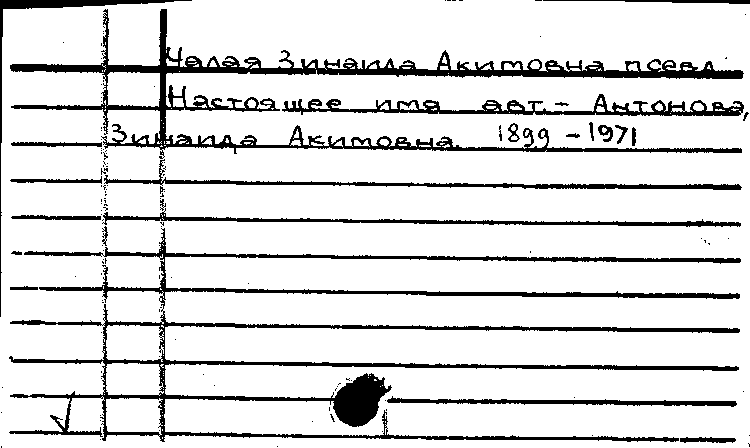 Чалая Зинаида Акимовна псевд.
Настоящее имя авт. - Антонова,
Зинаида Акимовна. 1899 - 1971